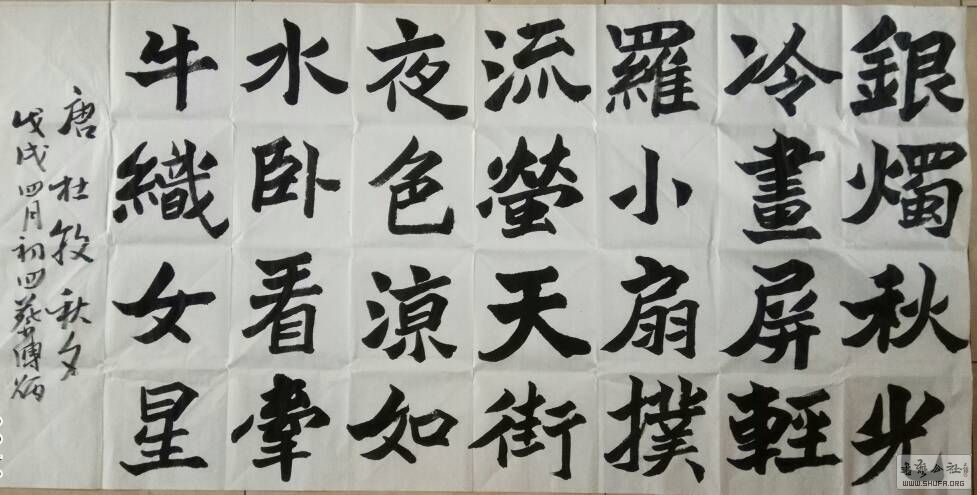 銀燭秋光
冷畫屏輕
羅小扇撲
流螢天街
夜色涼如
水卧看牽
牛織女星
唐 杜牧 秋夕
戊戌四月初四
公社
WWW.SHUFA.ORG